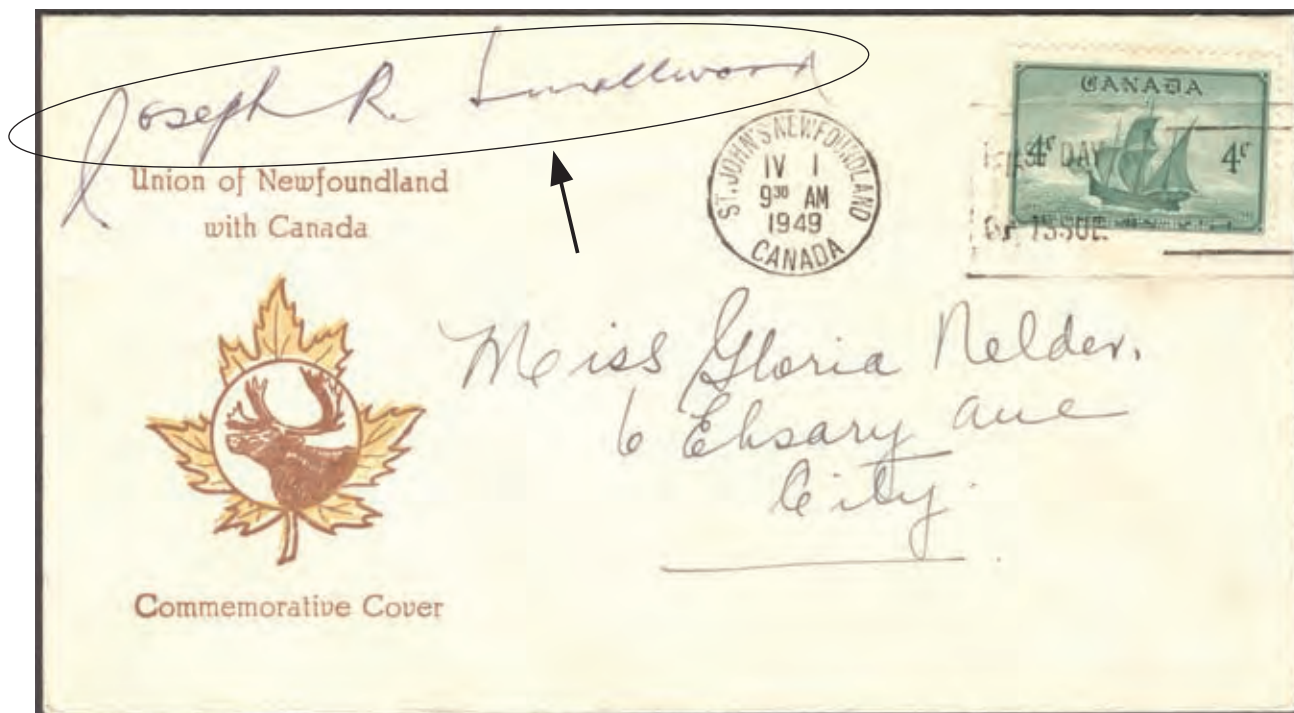 Joseph R. Smallwood
Union of Newfoundland
with Canada
ST. JOHN'S NEWFOUNDLAND
IV 1
9 30 AM
1949
CANADA
CANADA
4¢ 4¢
FIRST DAY
OF ISSUE
Miss Gloria Nelder.
6 Ebsary Ave
City.
Commemorative Cover